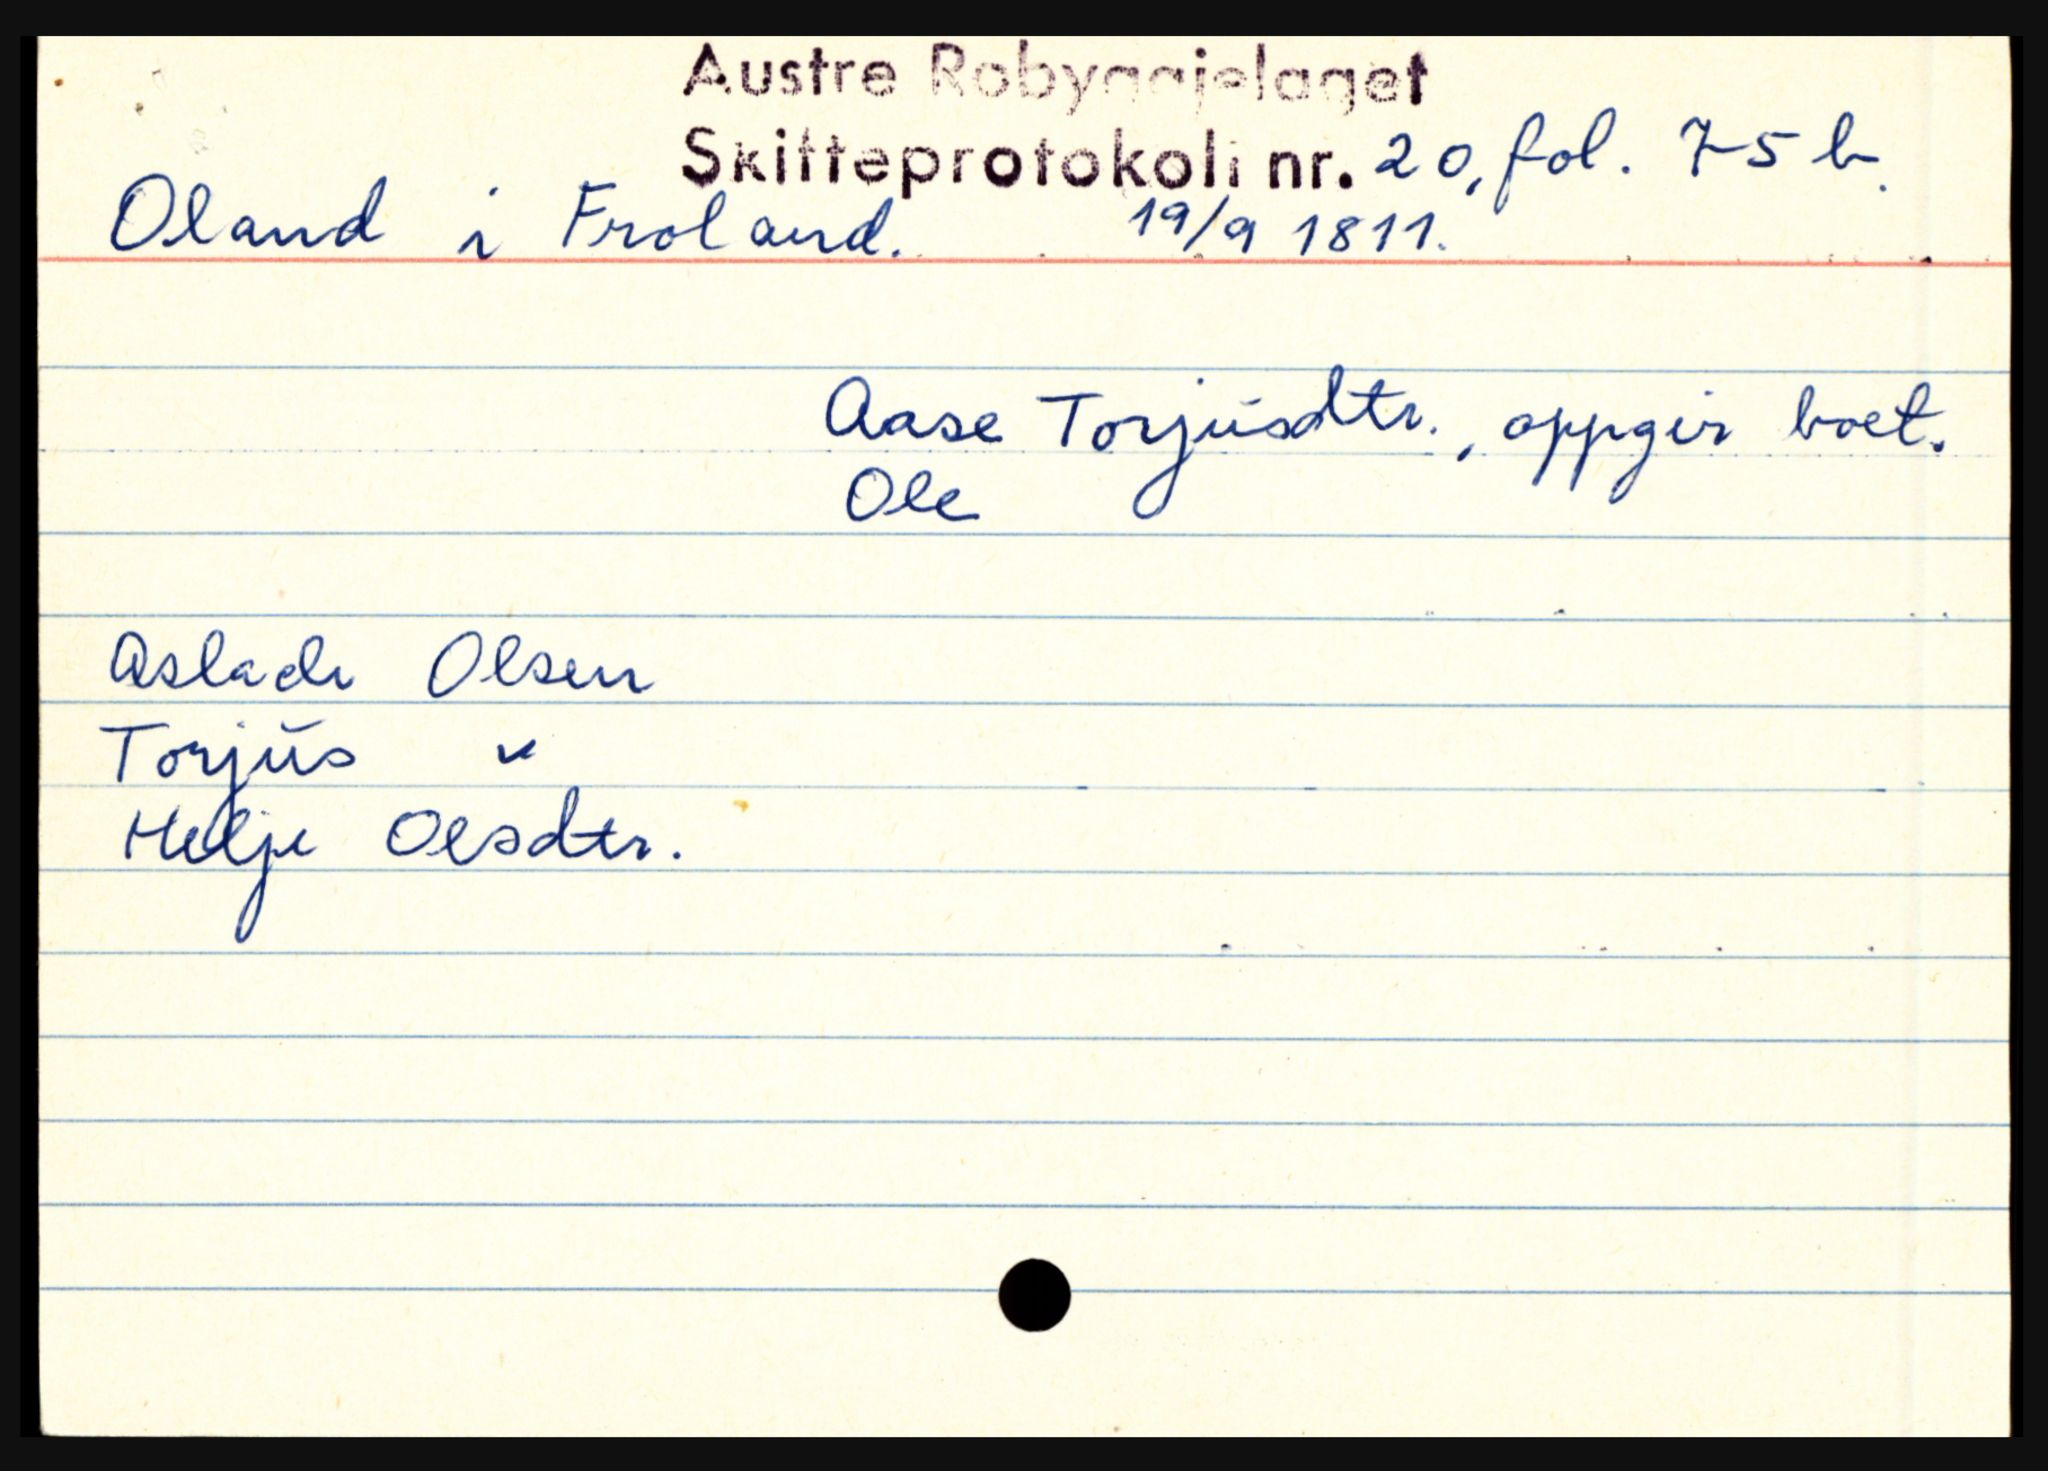 Austre Robyggjelaget
Skifteprotokoll nr. 20, fol. 75 b.
Oland i Froland. 19/9 1811.
Aase Torjusdtr., oppgir boet.
Ole
Aslach Olsen
Torjus "
Helje Olsdtr.